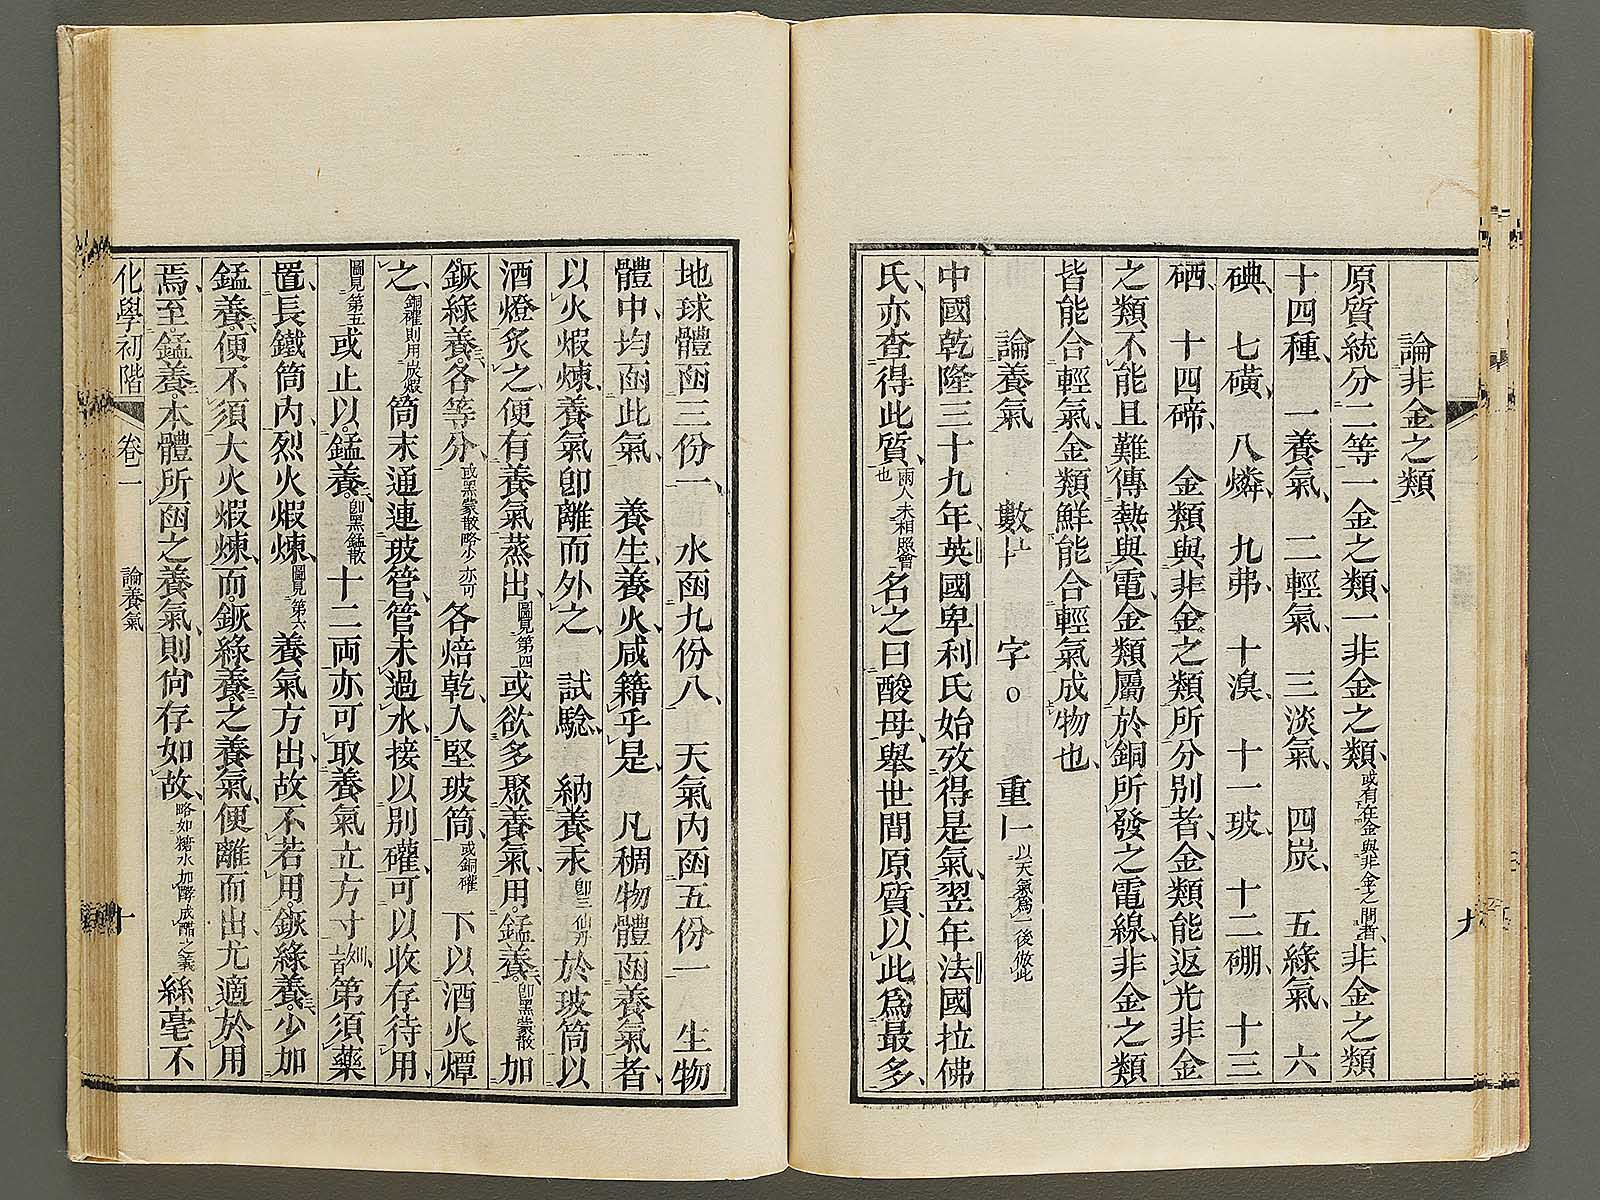 論非金之類
原質統分二等一金之類一非金之類或有在金與非金之間者非金之類
十四種　一養氣　二輕氣　三淡氣　四炭　五綠氣　六
碘　七磺　八燐　九弗　十溴　十一玻　十二硼　十三
硒　十四碲　金類與非金之類所分別者金類能返光非金
之類不能且難傳熱與電金類屬於銅所發之電線非金之類
皆能合輕氣金類鮮能合輕氣成物也
論養氣　數　字o　重　以天氣爲一後倣此
中國乾隆三十九年英國卑利氏始攷得是氣翌年法國拉佛
氏亦查得此質兩人未相照會也名之曰酸母舉世間原質以此爲最多
九
地球體函三份一　水函九份八　天氣內函五份一　生物
體中均函此氣　養生養火咸籍乎是　凡稠物體函養氣者
以火煆煉養氣卽離而外之　試驗　納養汞卽三仙丹於玻筒以
酒燈炙之便有養氣蒸出圖見第四或欲多聚養氣用錳養三卽黑蒙散加
鉀綠養三各等分或黑蒙散略少亦可各焙乾入堅玻筒或銅礶下以酒火燂
之銅礶則用炭煆筒末通連玻管管末過水接以別礶可以收存待用
圖見第五或止以錳養三卽黑錳散十二両亦可取養氣立方寸第須藥
置長鐵筒內烈火煆煉圖見第六養氣方出故不若用鉀綠養三少加
錳養三便不須大火煆煉而鉀綠養三之養氣便離而出尤適於用
焉至錳養三本體所函之養氣則尙存如故略如糖水加酵成酒之義絲毫不
化學初階　卷一　論養氣　十